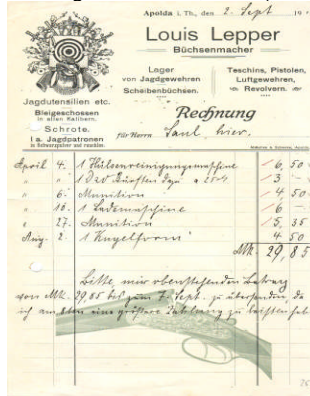 Apolda i. Th., den 2. Sept 19
Louis Lepper
Büchsenmacher
Lager
von Jagdgewehren
Scheibenbüchsen.
Teschins, Pistolen,
Luftgewehren,
Revolvern.
Jagdutensilien etc.
Bleigeschossen
in allen Kalibern.
Schrote.
I a. Jagdpatronen
in Schwarzpulver und rauchlos.
Rechnung
für Herrn Paul, hier.
April 4. 1 Hülsenreinigungsmaschine 16,50
" " 1 Dzd Bürsten dazu a 25 3 —
" 6. Munition 4 50
" 1 Lademaschine 6 —
" 27. Munition 5,35
Aug. 2. 1 Kugelform 4 50
Mk. 29,85
Bitte, mir obenstehenden Betrag
von Mk. 29,85 bis zum 7. Sept. zu übersenden, da
ich eine größere Zahlung zu leisten habe